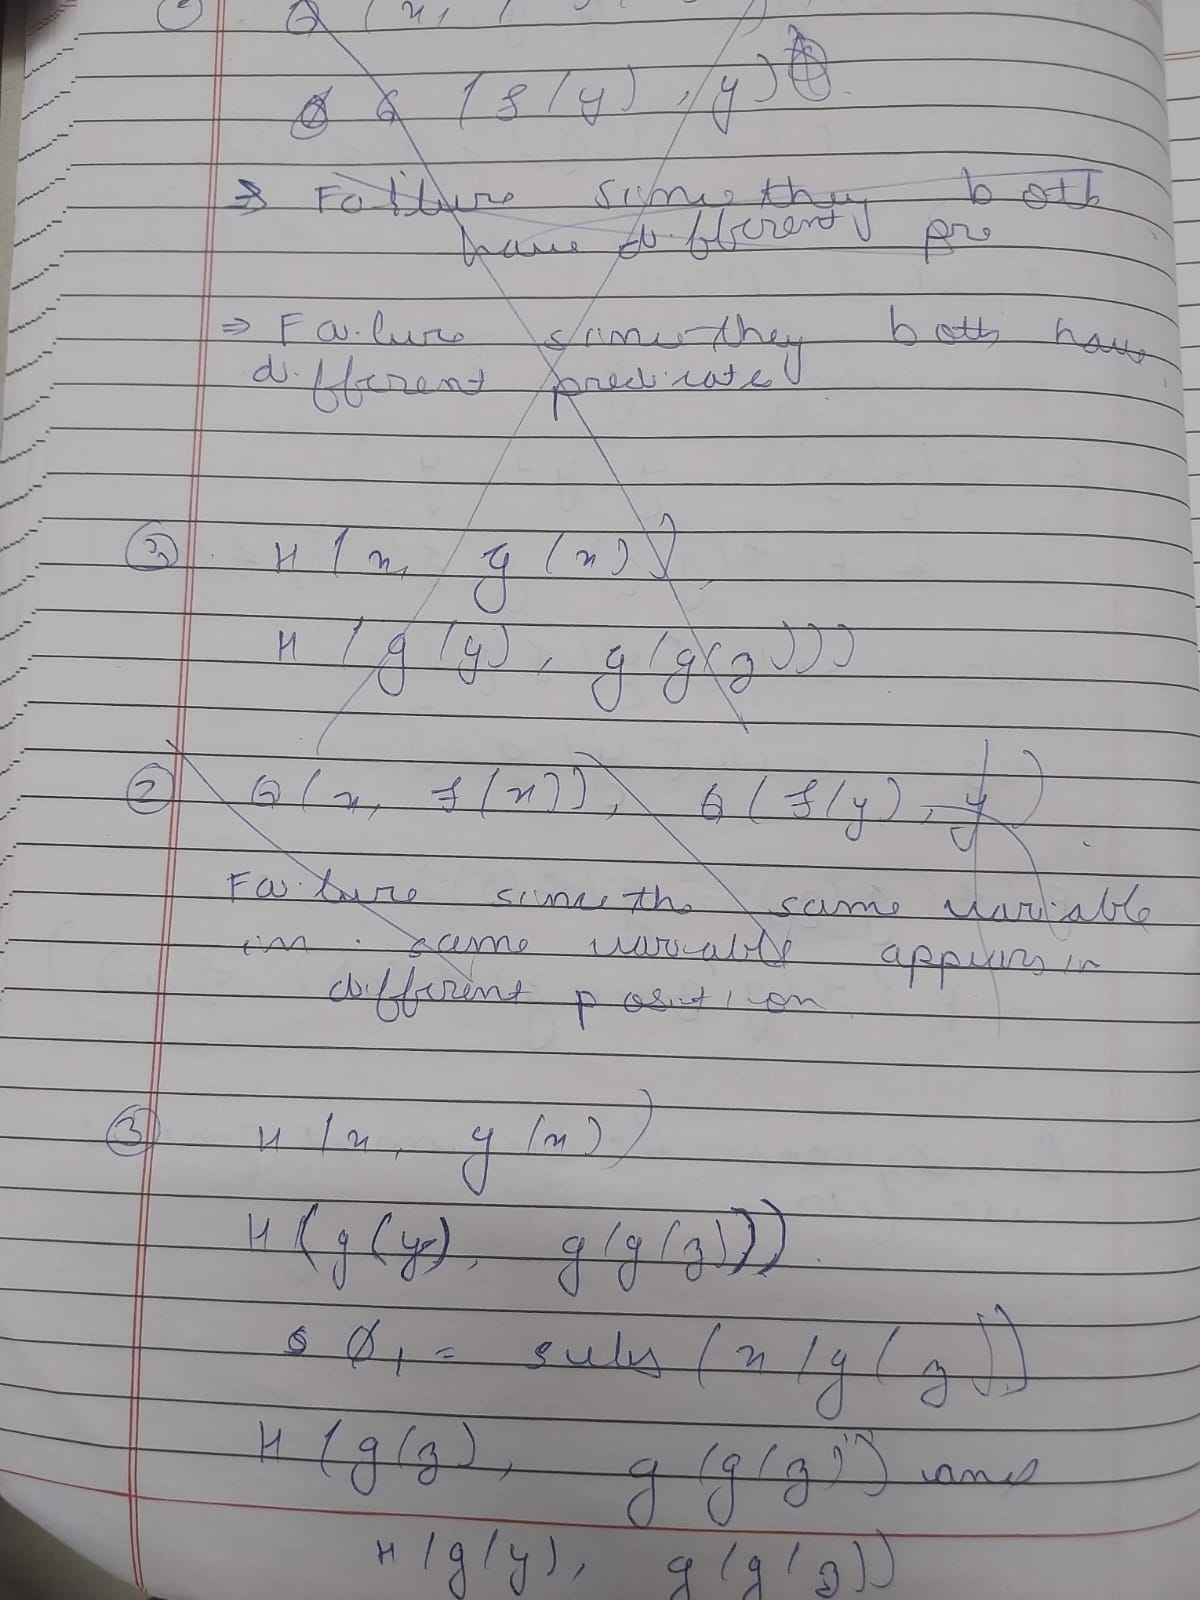 Q (x,
Q (f(y), y)
⇒ Failure since they both
have different pre
⇒ Failure since they both have
different predicate
③ H (x, g(x))
H (g(y), g(g(z)))
② Q(x, f(x)), Q(f(y), y)
Failure since the same variable
in same variable appears in
different position
③ H(x, g(x))
H(g(y), g(g(z)))
θ₁ = subs (x/g(z))
H(g(z), g(g(z))) and
H(g(y), g(g(z)))